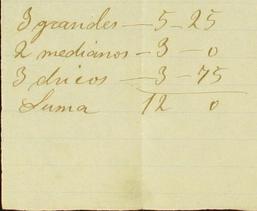 3 grandes — 5 - 25
2 medianos — 3 - 0
3 chicos — 3 - 75
Suma 12 0